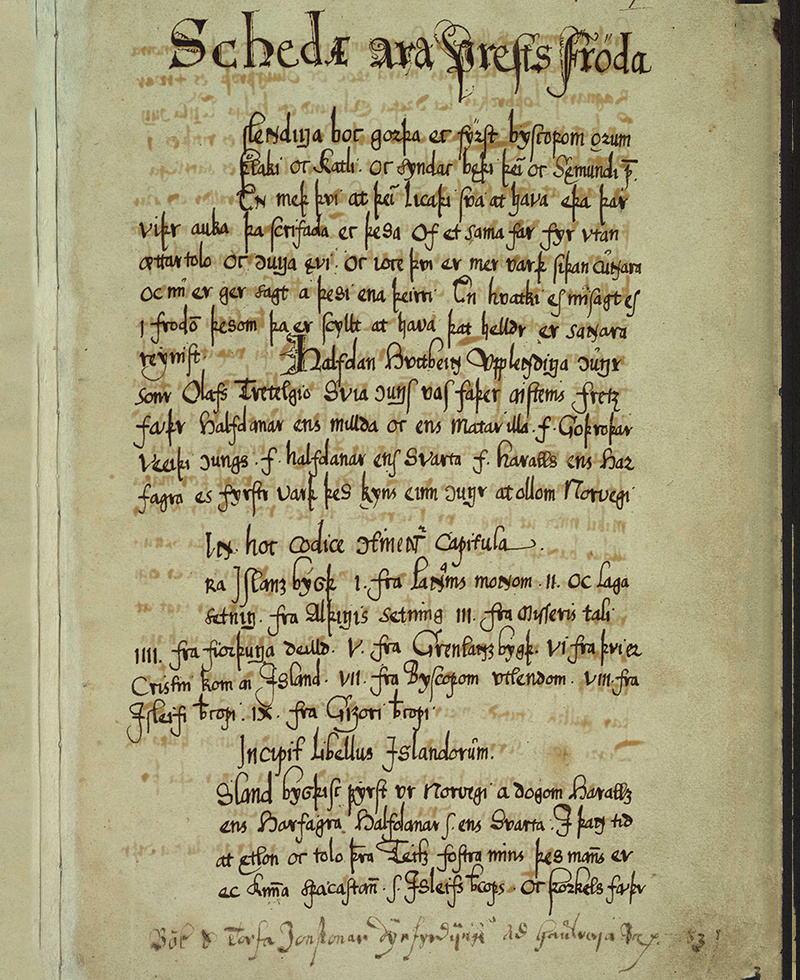 Schedæ ara prests fröda
slendinga boc gorþa ec fyrst byscopom orum
þorlaki oc Katli. oc syndac bęþi þeĩ oc Sęmundi p̃.
En meþ þvi at þeĩ licaþi sva at hava eþa þar
viþr auka þa scrifaða ec þesa of et sama far fyr utan
ættartolo oc conunga ęvi. oc ioce þvi er mer varþ siþan cũnara
oc nu er ger sagt a þesi enn a þeirri. En hvatki es missagt es
i frodõ þesom þa er scyllt at hava þat helldr er sannara
reynist. Halfdan Hvitbeinn Upplendinga conungr
sonr Olafs Tretelgio Svia conungs vas faþer Aysteins Fretz
faþur Halfdanar ens milda oc ens matar illa. f. Goþroþar
Veiþi conungs. f. halfdanar ens Svarta f. haralls ens Har
fagra es fyrstr varþ þes kyns einn conungr at ollom Norvegi
In hoc codice cõtinentr Capitula.
Ra Islanz bygþ I. fra Lannams monnom. II. oc laga
setning. fra Alþingis setning III. fra Misseris tali
IIII. fra fiorþunga deilld. V. fra Grenlanz bygþ. VI fra þvi er
Cristni kom a Island. VII. fra Byscopom utlendom. VIII. fra
Isleifi b̃copi. IX. fra Gizori b̃copi
Incipit libellus Islandorũm.
Sland bygþisc fyrst ur Norvegi a dogom Haralldz
ens Harfagra Halfdanar s. ens Svarta. I þann tid
at ętlon oc tolo þr̃a Teitz fostra mins þes manns er
ec kunna spacastan. s. Isleifs b̃cops. oc þorkels faþr